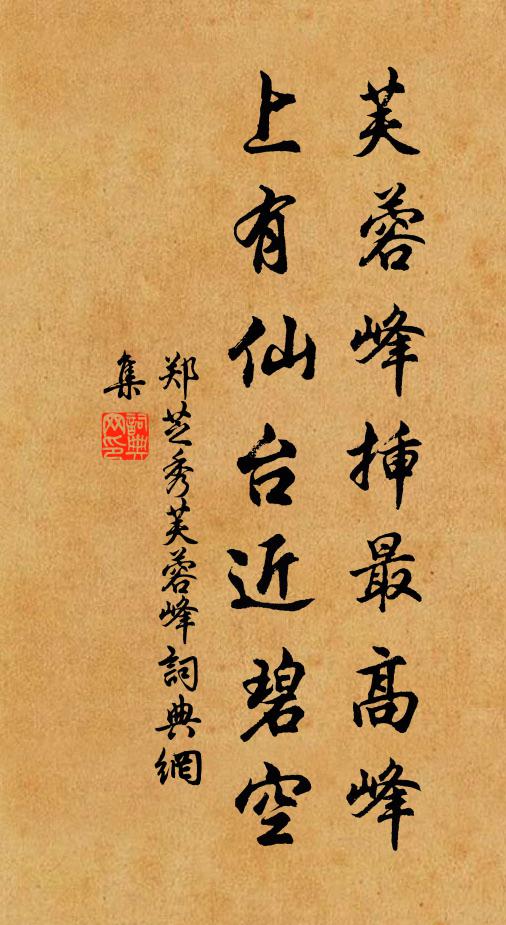 芙蓉峰挿最高峰
上有仙台近碧空
郑芝秀芙蓉峰詞典網
集
詞典
网印